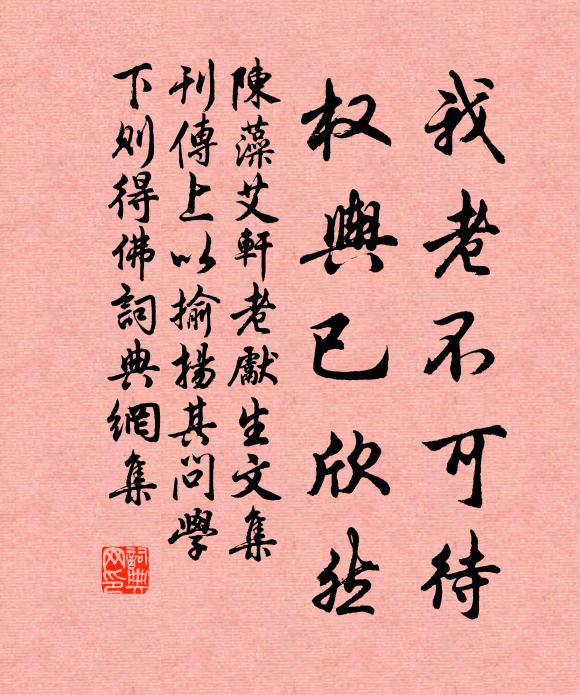 我老不可待
权輿已欣然
陳藻艾軒老獻生文集
刊傳上以揄揚其问學
下则得佛詞典網集
詞典网印